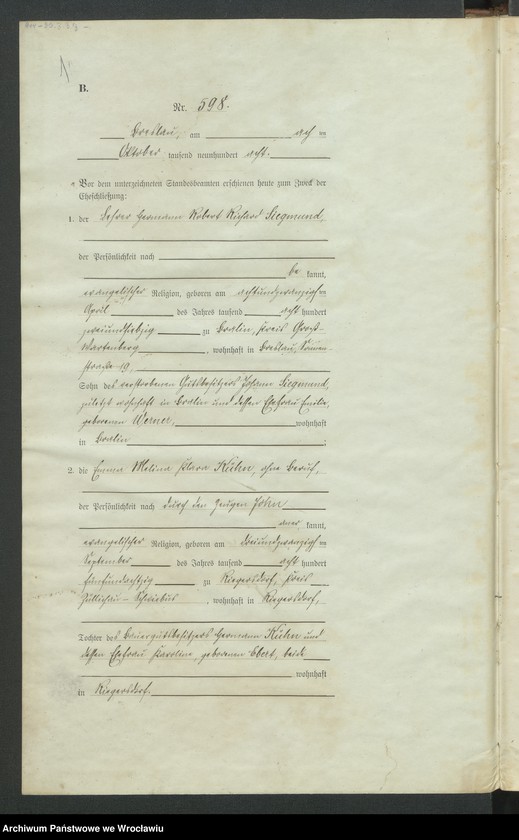 B.
Nr. 598.
Breslau, am acht ten
Oktober tausend neunhundert acht.
Vor dem unterzeichneten Standesbeamten erschienen heute zum Zweck der
Eheschließung:
1. der Lehrer Hermann Robert Richard Siegmund,
der Persönlichkeit nach
be kannt,
evangelischer Religion, geboren am achtundzwanzigsten
April des Jahres tausend acht hundert
zweiundsiebzig zu Bralin, Kreis Groß-
Wartenberg, wohnhaft in Breslau,
straße 19,
Sohn des verstorbenen Gutsbesitzers Johann Siegmund,
zuletzt wohnhaft in Bralin und dessen Ehefrau Emilie,
geborenen Werner, wohnhaft
in Bralin;
2. die Emma Melina Klara Kühn, ohne Beruf,
der Persönlichkeit nach durch den Zeugen John
aner kannt,
evangelischer Religion, geboren am dreiundzwanzigsten
September des Jahres tausend acht hundert
fünfundachtzig zu Riegersdorf, Kreis
Züllichau-Schwiebus, wohnhaft in Riegersdorf,
Tochter des Bauergutsbesitzers Hermann Kühn und
dessen Ehefrau Karoline, geborenen Ebert, beide
wohnhaft
in Riegersdorf.
Archiwum Państwowe we Wrocławiu